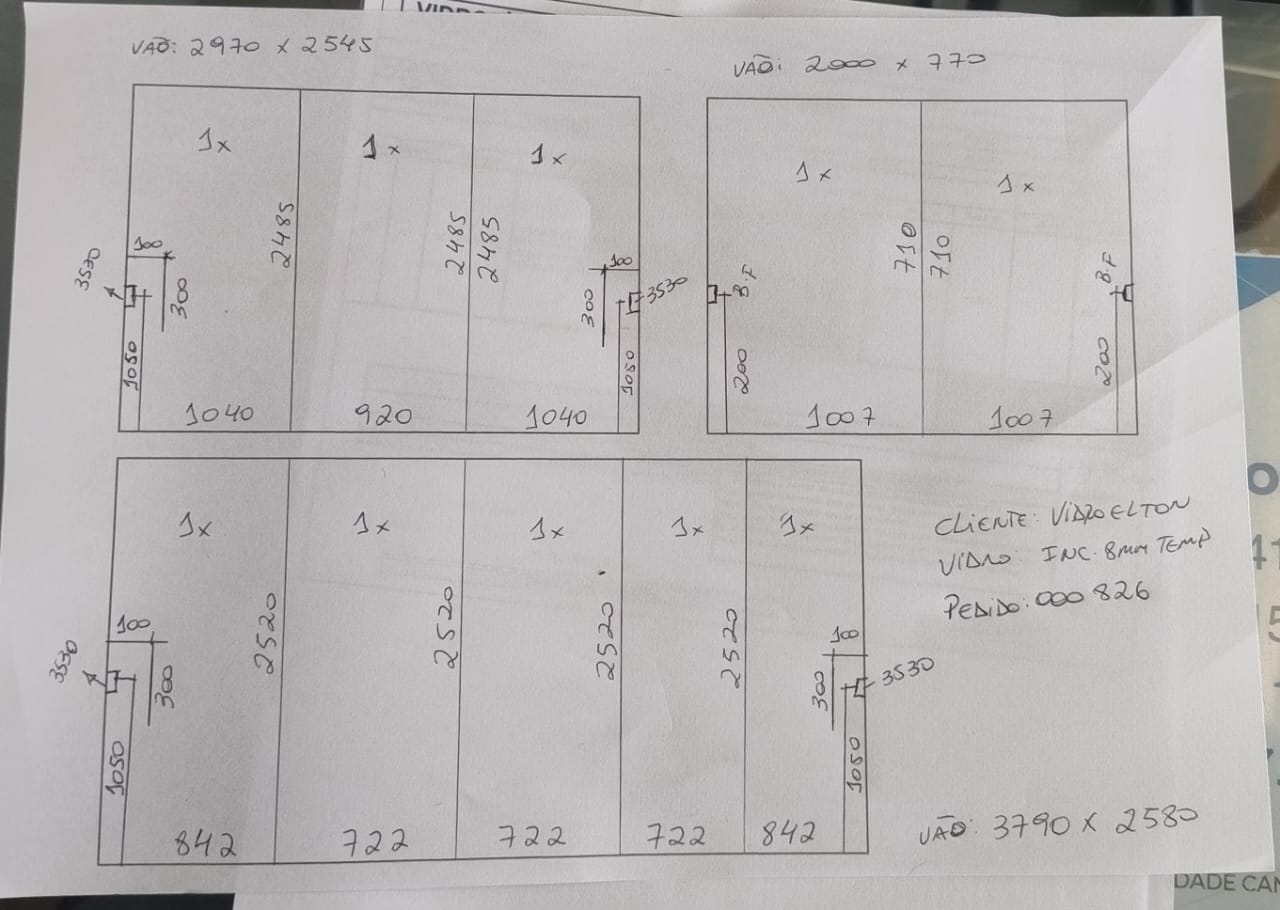 VÃO: 2970 x 2545
1x
1x
1x
2485
2485
2485
100
300
3530
1050
100
300
3530
1050
1040
920
1040
VÃO: 2000 x 770
1x
1x
710
710
B.F
B.F
200
200
1007
1007
1x
1x
1x
1x
1x
2520
2520
2520
2520
100
300
3530
1050
100
300
3530
1050
842
722
722
722
842
CLIENTE: VIDROELTON
VIDRO: INC. 8MM TEMP
PEDIDO: 000 826
VÃO: 3790 x 2580
DADE CAN